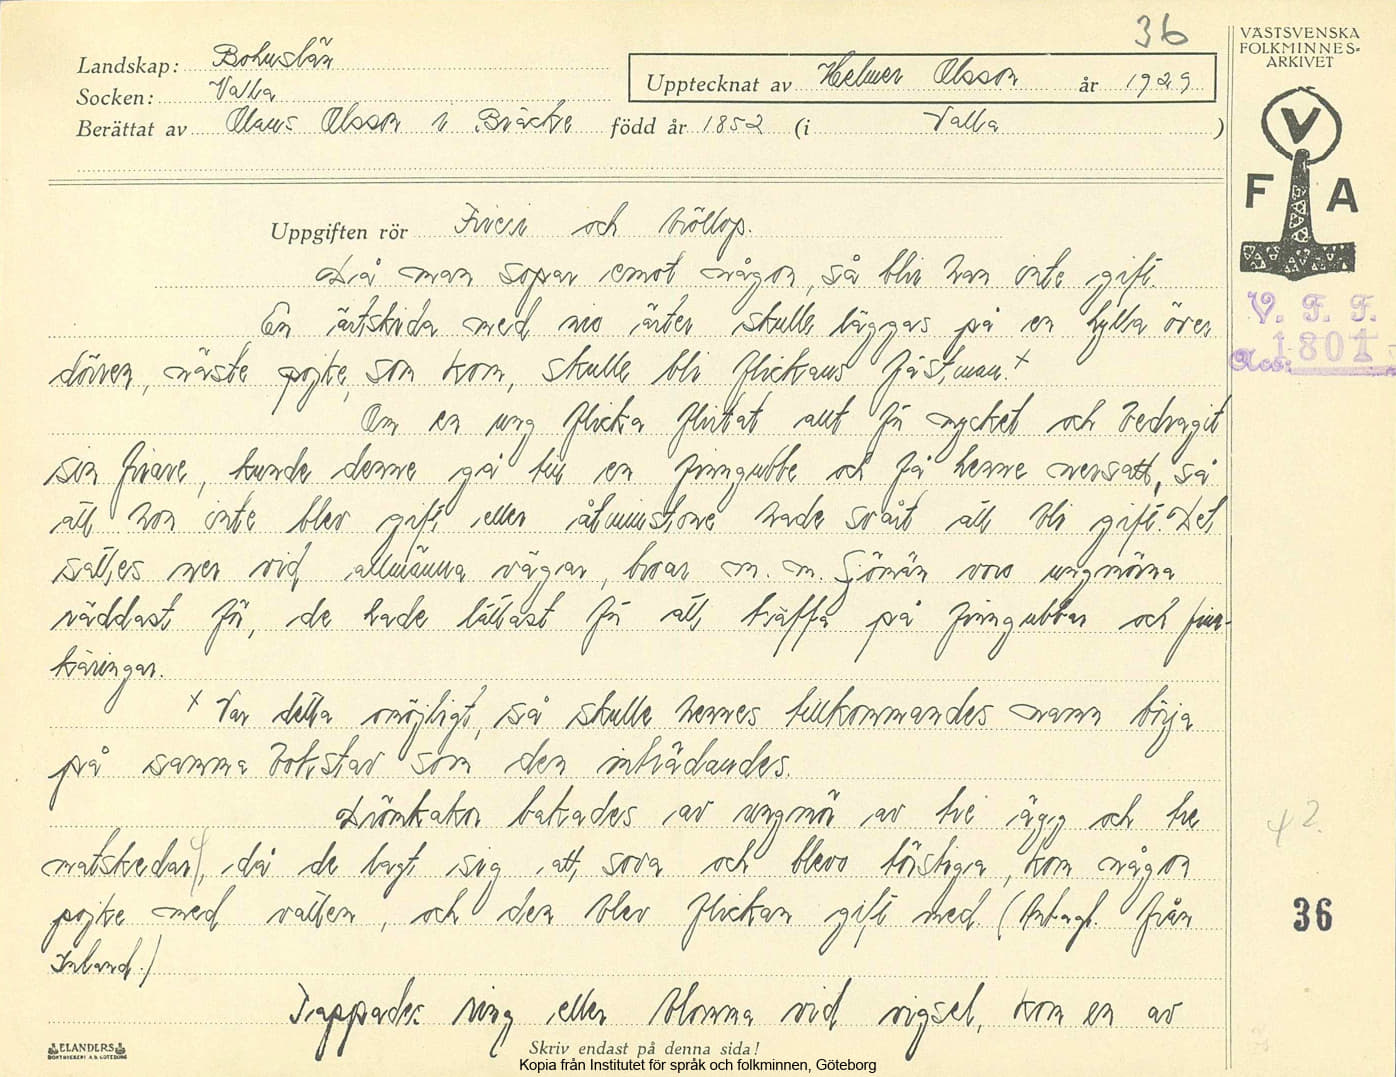 36
VÄSTSVENSKA
FOLKMINNES-
ARKIVET
Landskap: Bohuslän
Upptecknat av Helmer Olsson år 1929
Socken: Valla
Berättat av Olaus Olsson i Bräcke född år 1852 (i Valla )
V
F A
Uppgiften rör Frieri och bröllop.
Då man sopar emot någon, så blir han inte gift.
V. F. F.
En ärtskida med nio ärter skulle läggas på en hylla över
Acc. 1801
dörren, näste pojke, som kom, skulle bli flickans fästman.x
Om en ung flicka flirtat allt för mycket och bedragit
sin friare, kunde denne gå till en finngubbe och få henne nersatt, så
att hon inte blev gift eller åtminstone hade svårt att bli gift. Det
sattes ner vid allmänna vägar, broar m. m. Sjömän voro ungmörna
räddast för, de hade lättast för att träffa på finngubbar och finn-
käringar.
x Var detta omöjligt, så skulle hennes tillkommandes namn börja
på samma bokstav som den inträdandes.
Drömkakor bakades av ungmör av tre ägg och tre
42.
matskedar, då de lagt sig att sova och blevo törstiga, kom någon
pojke med vatten, och den blev flickan gift med. (Antagl. från
36
Inland.)
Tappades ring eller blomma vid vigsel, kom en av
ELANDERS
BOKTRYCKERI A.B. GÖTEBORG
Skriv endast på denna sida!
Kopia från Institutet för språk och folkminnen, Göteborg